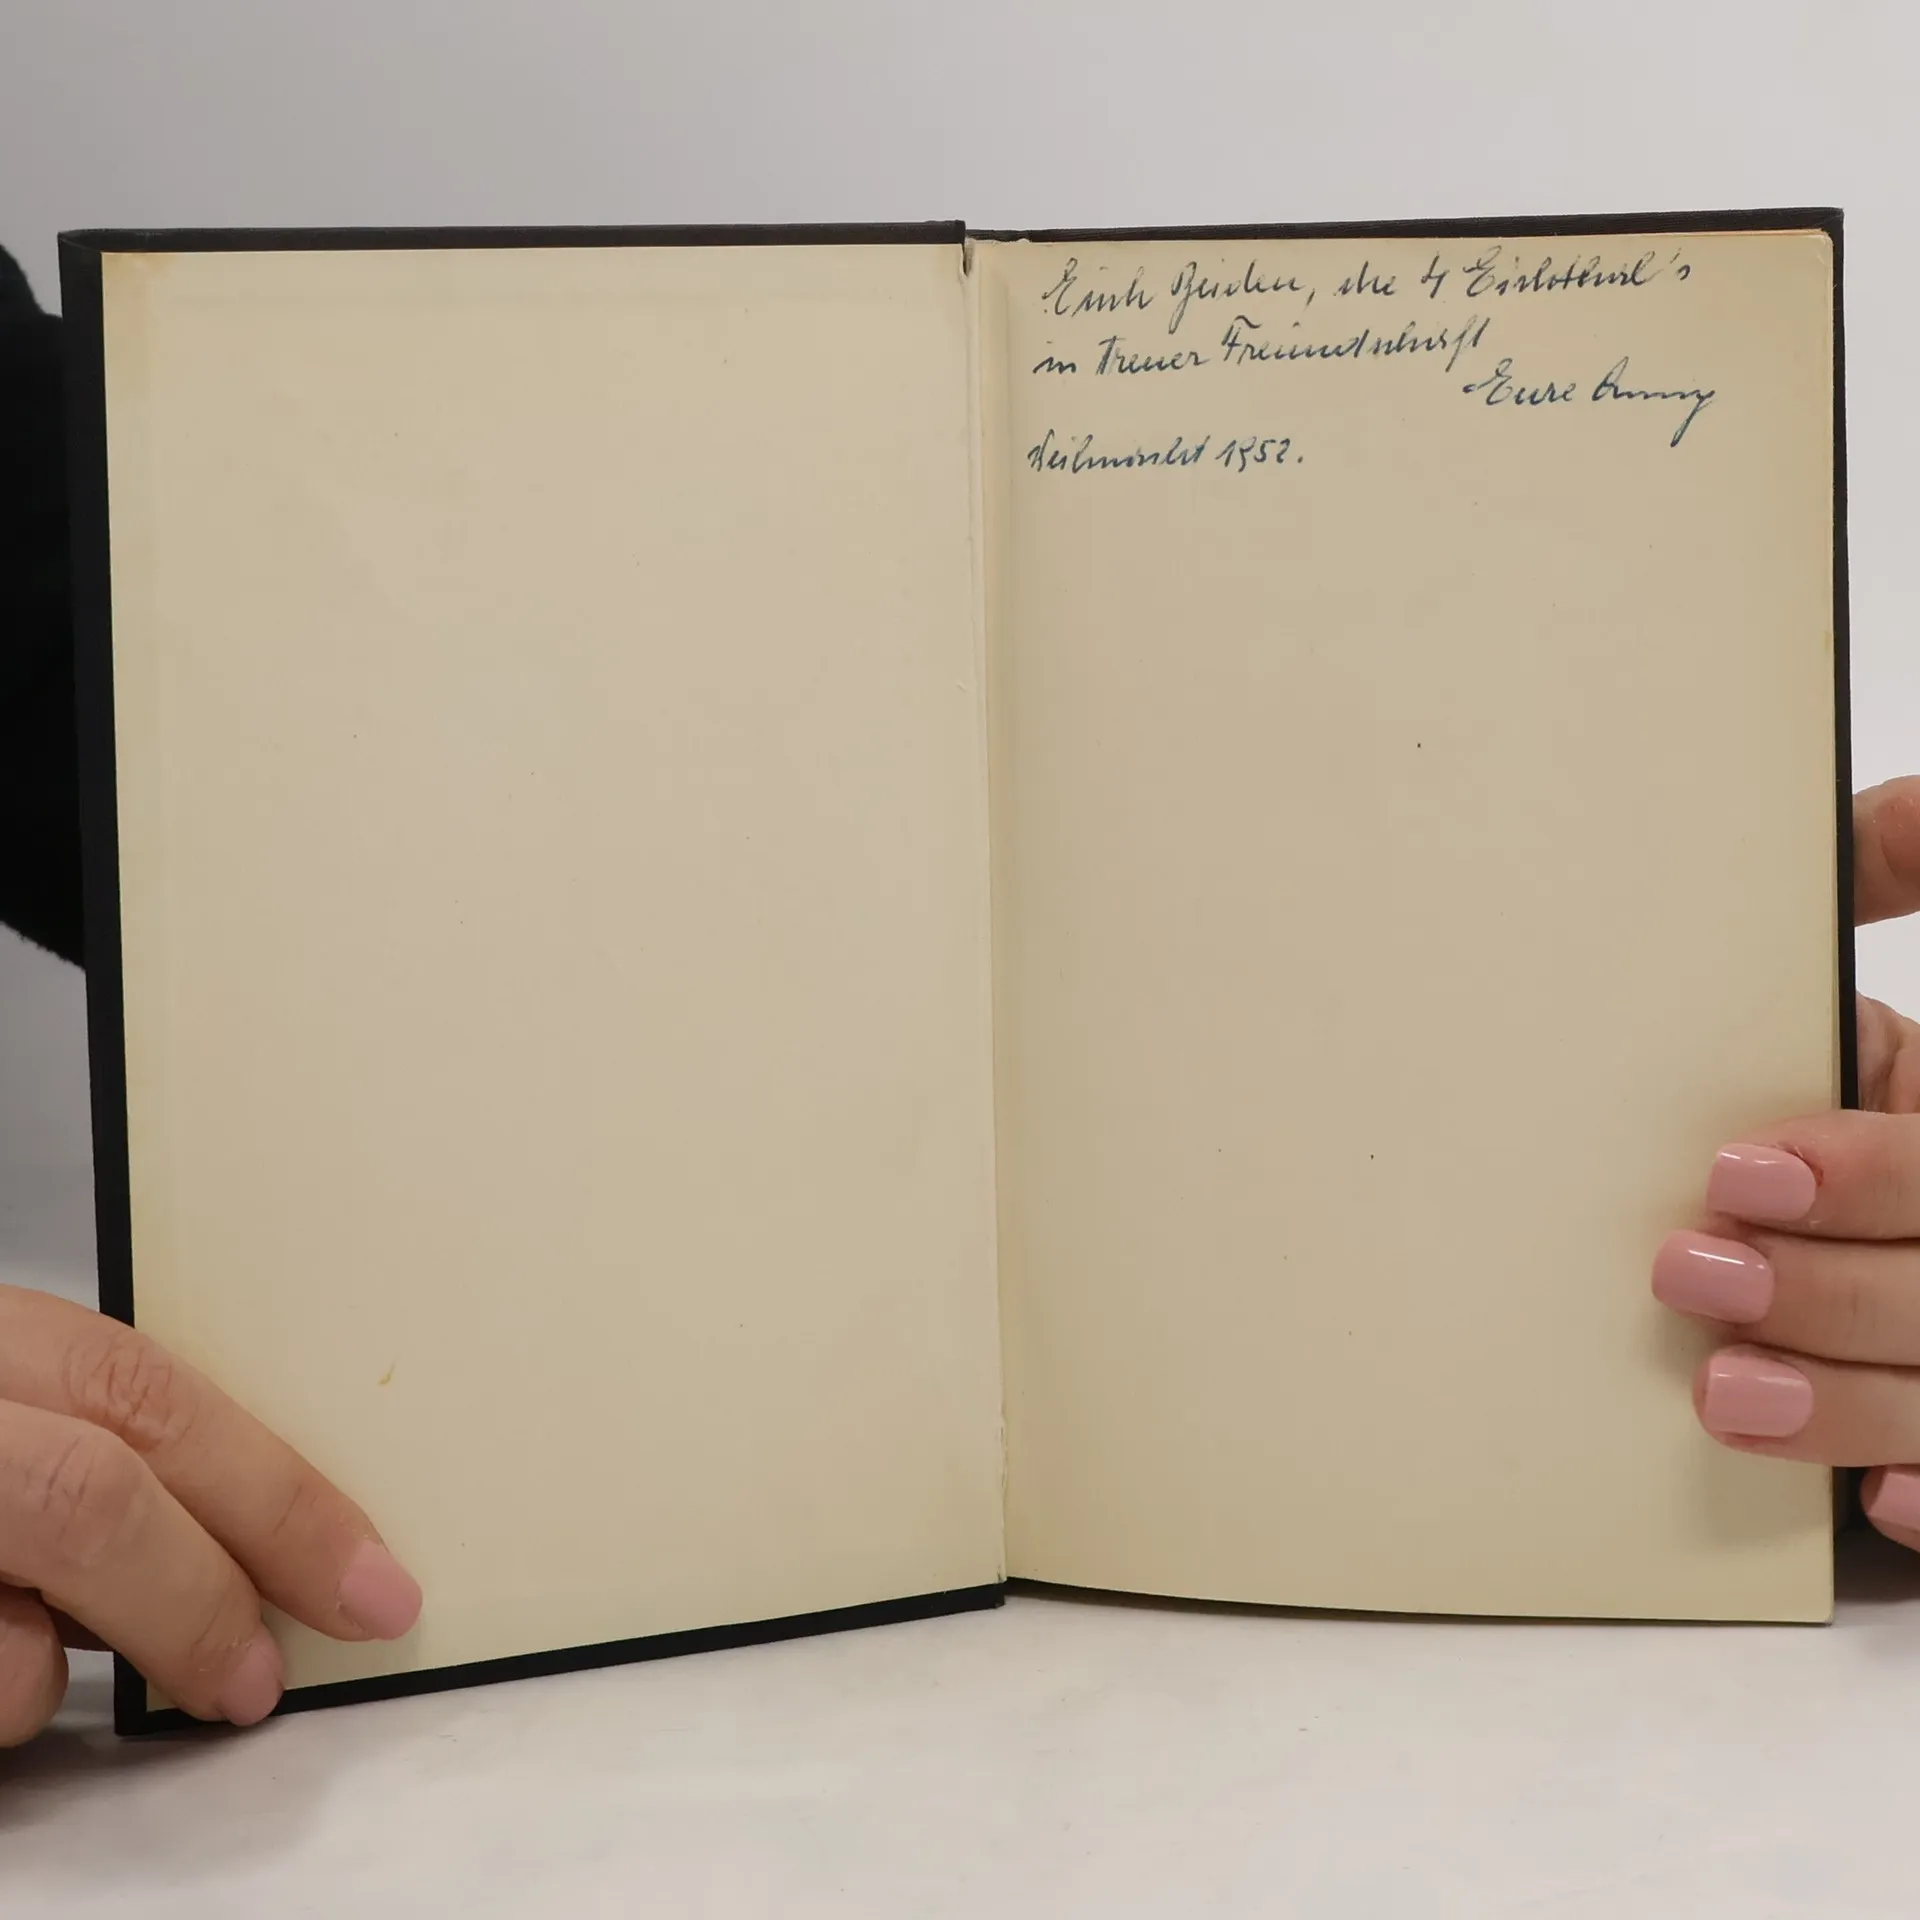 Euch Beiden, die 4
in treuer Freundschaft
Eure
Weihnacht 1952.